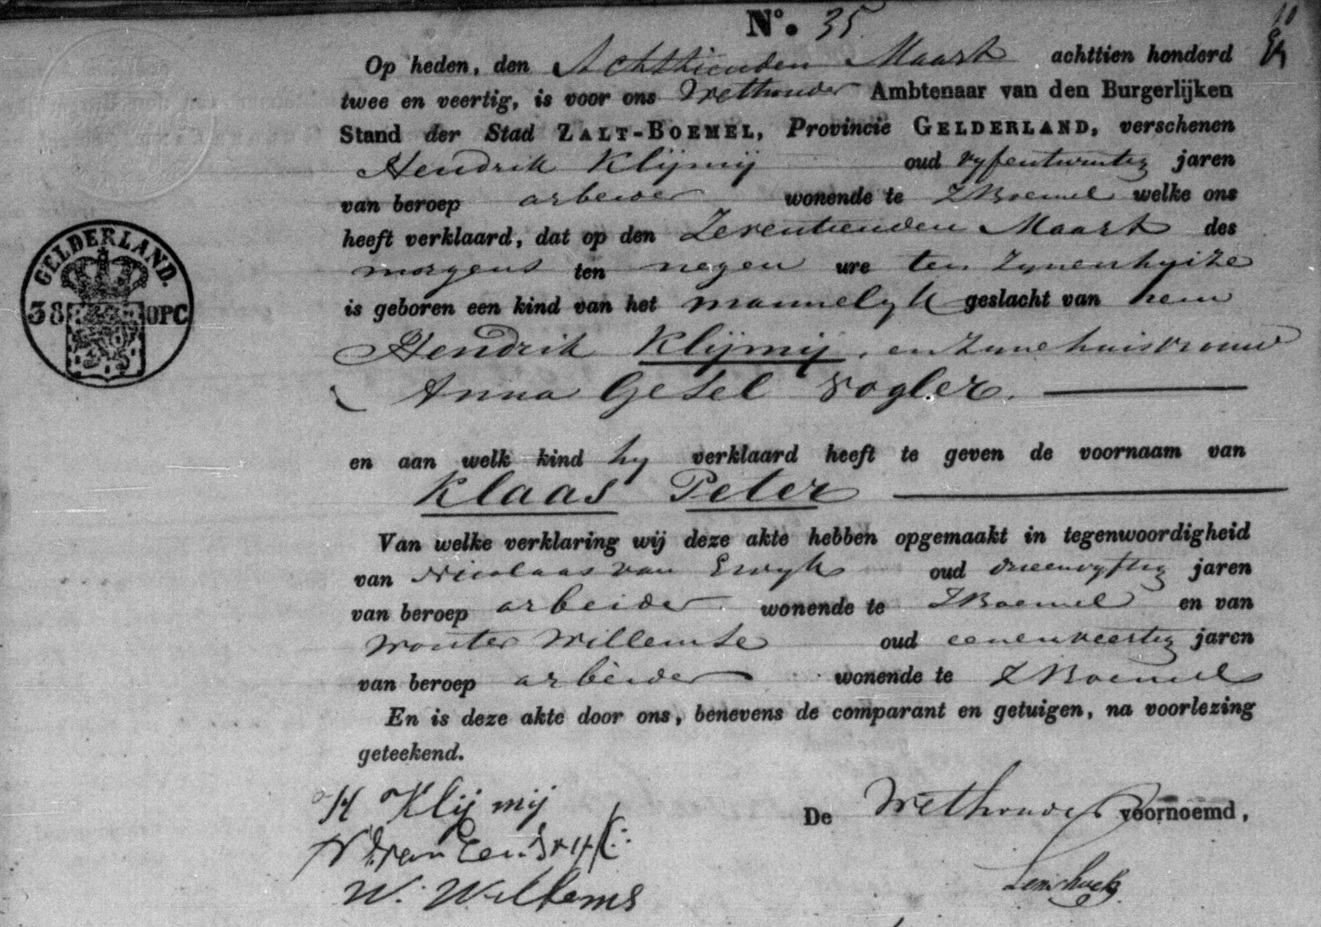 No. 35
Op heden, den Achttienden Maart achttien honderd
twee en veertig, is voor ons Wethouder Ambtenaar van den Burgerlijken
Stand der Stad ZALT-BOEMEL, Provincie GELDERLAND, verschenen
Hendrik Klijmij oud vyfentwintig jaren
van beroep arbeider wonende te ZBoemel welke ons
heeft verklaard, dat op den Zeventienden Maart des
morgens ten negen ure ten zynenhuize
is geboren een kind van het mannelyk geslacht van hem
Hendrik Klijmij, en zyne huisvrouw
Anna Gesel Vogler.
en aan welk kind hy verklaard heeft te geven de voornaam van
Klaas Peter
Van welke verklaring wij deze akte hebben opgemaakt in tegenwoordigheid
van Nicolaas van Ewyk oud drieenvyftig jaren
van beroep arbeider wonende te ZBoemel en van
Wouter Willemse oud eenenveertig jaren
van beroep arbeider wonende te ZBoemel
En is deze akte door ons, benevens de comparant en getuigen, na voorlezing
geteekend.
H Klijmij
De Wethouder voornoemd,
W. Willems
GELDERLAND.
38 OPC